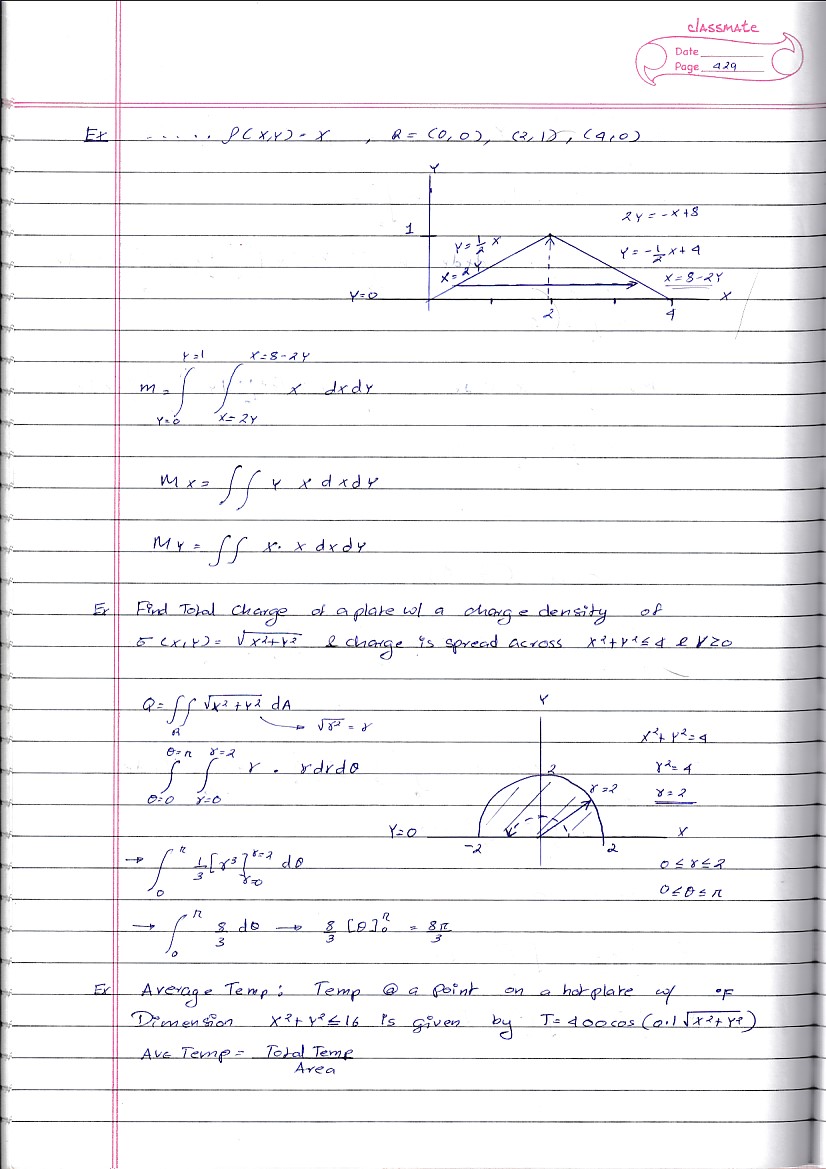 classmate
Date
Page 429
Ex ...... ρ(x,y) = x , R = (0,0), (2,1), (4,0)
Y
1
Y = 1/2 X
X = 2Y
2Y = -X+8
Y = -1/2 X + 4
X = 8-2Y
Y=0
2
4
X
m = ∫_{Y=0}^{Y=1} ∫_{X=2Y}^{X=8-2Y} x dxdy
Mx = ∫∫ y x dxdy
My = ∫∫ x. x dxdy
Ex Find Total charge of a plate w/ a charge density of
σ(x,y) = √(x²+y²) & charge is spread across x²+y² ≤ 4 & y≥0
Q = ∫∫_R √(x²+y²) dA
→ √r² = r
∫_{θ=0}^{θ=π} ∫_{r=0}^{r=2} r . r dr dθ
→ ∫_0^π 1/3 [r³]_{r=0}^{r=2} dθ
→ ∫_0^π 8/3 dθ → 8/3 [θ]_0^π = 8π/3
Y
2
r=2
Y=0
-2
2
X
x²+y²=4
r²=4
r=2
0≤r≤2
0≤θ≤π
Ex Average Temp: Temp @ a point on a hot plate w/ °F
Dimension x²+y²≤16 is given by T=400cos(0.1√(x²+y²))
Ave Temp = Total Temp / Area